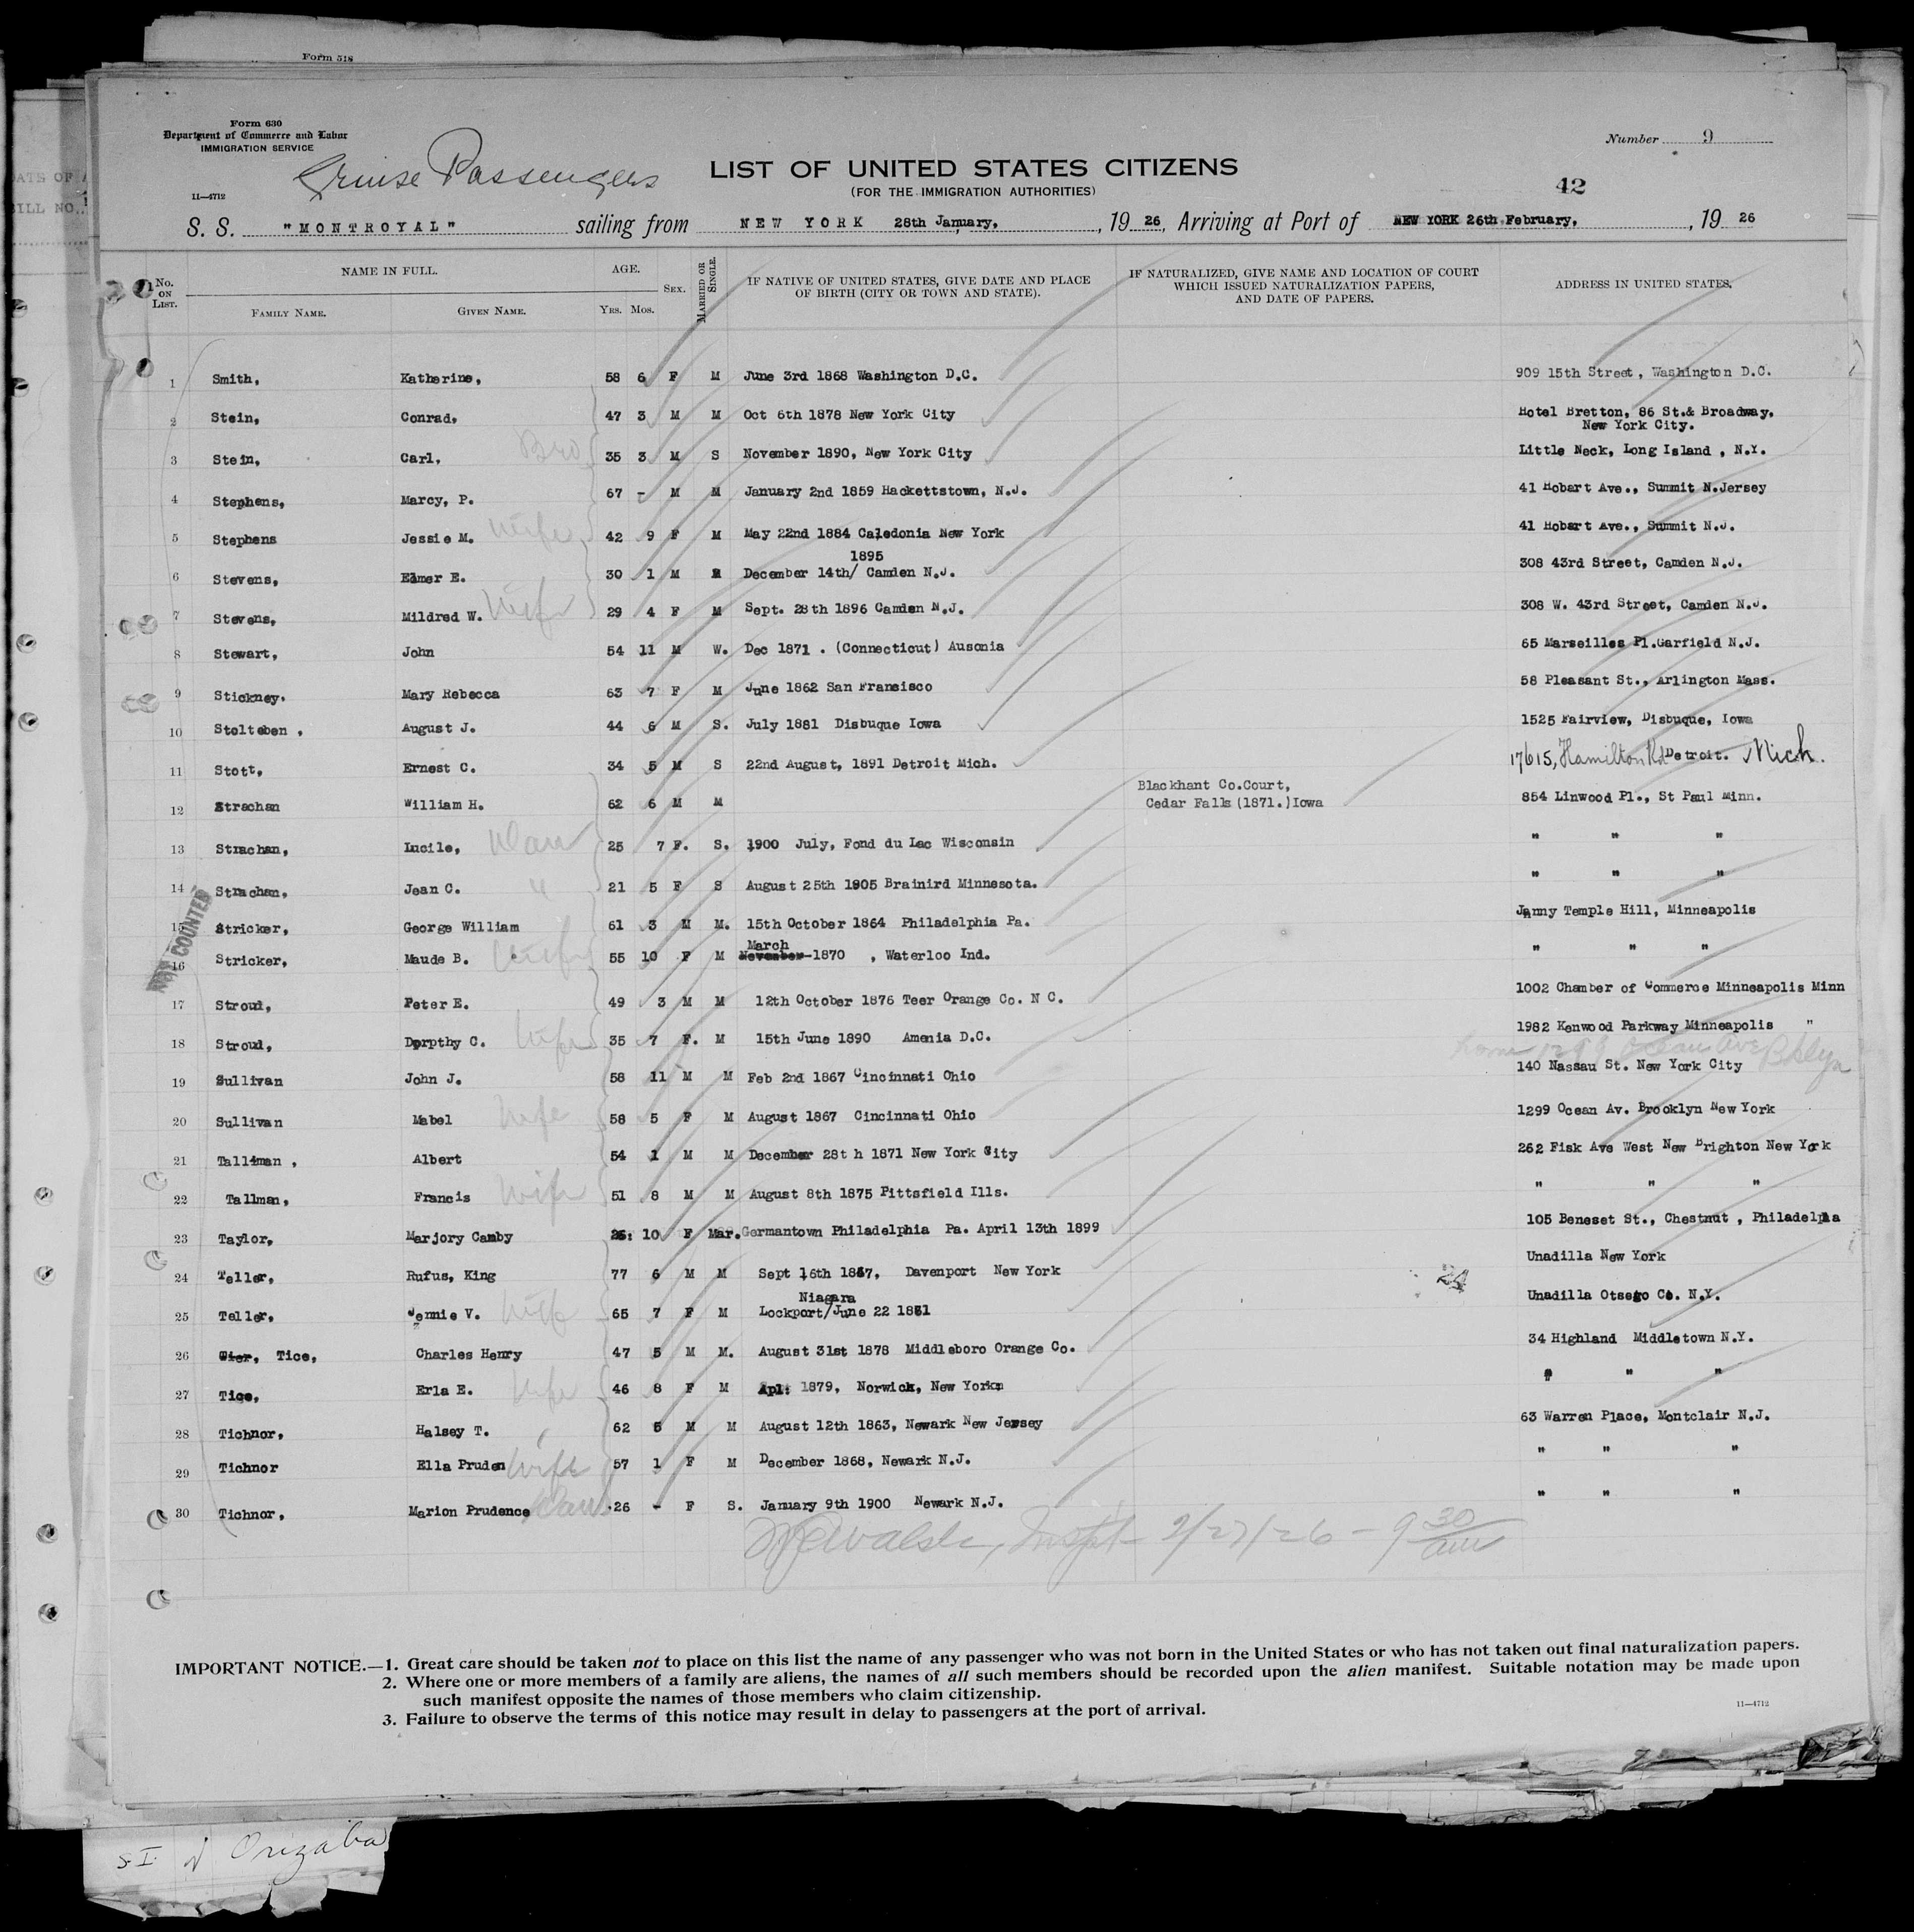 Form 518
Form 630
Department of Commerce and Labor
IMMIGRATION SERVICE
Cruise Passengers
11—4712
LIST OF UNITED STATES CITIZENS
(FOR THE IMMIGRATION AUTHORITIES)
Number 9
42
S. S. "MONTROYAL" sailing from NEW YORK 28th January, , 19 26, Arriving at Port of NEW YORK 26th February, , 19 26
No. ON LIST. NAME IN FULL. FAMILY NAME. GIVEN NAME. AGE. YRS. MOS. SEX. MARRIED OR SINGLE. IF NATIVE OF UNITED STATES, GIVE DATE AND PLACE OF BIRTH (CITY OR TOWN AND STATE). IF NATURALIZED, GIVE NAME AND LOCATION OF COURT WHICH ISSUED NATURALIZATION PAPERS, AND DATE OF PAPERS. ADDRESS IN UNITED STATES.
1 Smith, Katherine, 58 6 F M June 3rd 1868 Washington D.C. 909 15th Street, Washington D.C.
2 Stein, Conrad, 47 3 M M Oct 6th 1878 New York City Hotel Bretton, 86 St.& Broadway, New York City.
3 Stein, Carl, Bro 35 3 M S November 1890, New York City Little Neck, Long Island , N.Y.
4 Stephens, Marcy, P. 67 - M M January 2nd 1859 Hackettstown, N.J. 41 Hobart Ave., Summit N.Jersey
5 Stephens Jessie M. Wife 42 9 F M May 22nd 1884 Caledonia New York 41 Hobart Ave., Summit N.J.
6 Stevens, Elmer E. 30 1 M M December 14th/ 1895 Camden N.J. 308 43rd Street, Camden N.J.
7 Stevens, Mildred W. Wife 29 4 F M Sept. 28th 1896 Camden N.J. 308 W. 43rd Street, Camden N.J.
8 Stewart, John 54 11 M W. Dec 1871 . (Connecticut) Ausonia 65 Marseilles Pl.Garfield N.J.
9 Stickney. Mary Rebecca 63 7 F M June 1862 San Fransisco 58 Pleasant St., Arlington Mass.
10 Stolteben , August J. 44 6 M S. July 1881 Disbuque Iowa 1525 Fairview, Disbuque, Iowa
11 Stott, Ernest C. 34 5 M S 22nd August, 1891 Detroit Mich. 17615, Hamilton Rd Detroit. Mich.
12 Strachan William H. 62 6 M M Blackhant Co.Court, Cedar Falls (1871.)Iowa 854 Linwood Pl., St Paul Minn.
13 Strachan, Lucile, Dau 25 7 F. S. 1900 July, Fond du Lac Wisconsin " " "
14 Strachan, Jean C. " 21 5 F S August 25th 1905 Brainird Minnesota. " " "
15 Stricker, George William 61 3 M M. 15th October 1864 Philadelphia Pa. Janny Temple Hill, Minneapolis
16 Stricker, Maude B. Wife 55 10 F M November March 1870 , Waterloo Ind. " " "
NOT COUNTED
17 Stroud, Peter E. 49 3 M M 12th October 1876 Teer Orange Co. N C. 1002 Chamber of Commerce Minneapolis Minn
18 Stroud, Dorpthy C. Wife 35 7 F. M 15th June 1890 Amenia D.C. 1982 Kenwood Parkway Minneapolis "
home 1299 Ocean Ave Bklyn
19 Sullivan John J. 58 11 M M Feb 2nd 1867 Cincinnati Ohio 140 Nassau St. New York City
20 Sullivan Mabel Wife 58 5 F M August 1867 Cincinnati Ohio 1299 Ocean Av. Brooklyn New York
21 Tallman , Albert 54 1 M M December 28t h 1871 New York City 262 Fisk Ave West New Brighton New York
22 Tallman, Francis Wife 51 8 M M August 8th 1875 Pittsfield Ills. " " "
23 Taylor, Marjory Canby 26: 10 F Mar. Germantown Philadelphia Pa. April 13th 1899 105 Beneset St., Chestnut , Philadelphia
24 Teller, Rufus, King 77 6 M M Sept 16th 1847, Davenport New York 24 Unadilla New York
25 Teller, Jennie V. Wife 65 7 F M Lockport/ Niagara June 22 1861 Unadilla Otsego Co. N.Y.
26 Tice, Charles Henry 47 5 M M. August 31st 1878 Middleboro Orange Co. 34 Highland Middletown N.Y.
27 Tice, Erla E. Wife 46 8 F M Apl: 1879, Norwick, New York " " "
28 Tichnor, Halsey T. 62 5 M M August 12th 1863, Newark New Jersey 63 Warren Place, Montclair N.J.
29 Tichnor Ella Pruden Wife 57 1 F M December 1868, Newark N.J. " " "
30 Tichnor, Marion Prudence Dau 26 - F S. January 9th 1900 Newark N.J. " " "
Walsh, Inspt 2/27/26 - 9 30 am
IMPORTANT NOTICE.—1. Great care should be taken not to place on this list the name of any passenger who was not born in the United States or who has not taken out final naturalization papers.
2. Where one or more members of a family are aliens, the names of all such members should be recorded upon the alien manifest. Suitable notation may be made upon
such manifest opposite the names of those members who claim citizenship.
3. Failure to observe the terms of this notice may result in delay to passengers at the port of arrival.
11—4712
S.I. of Orizaba